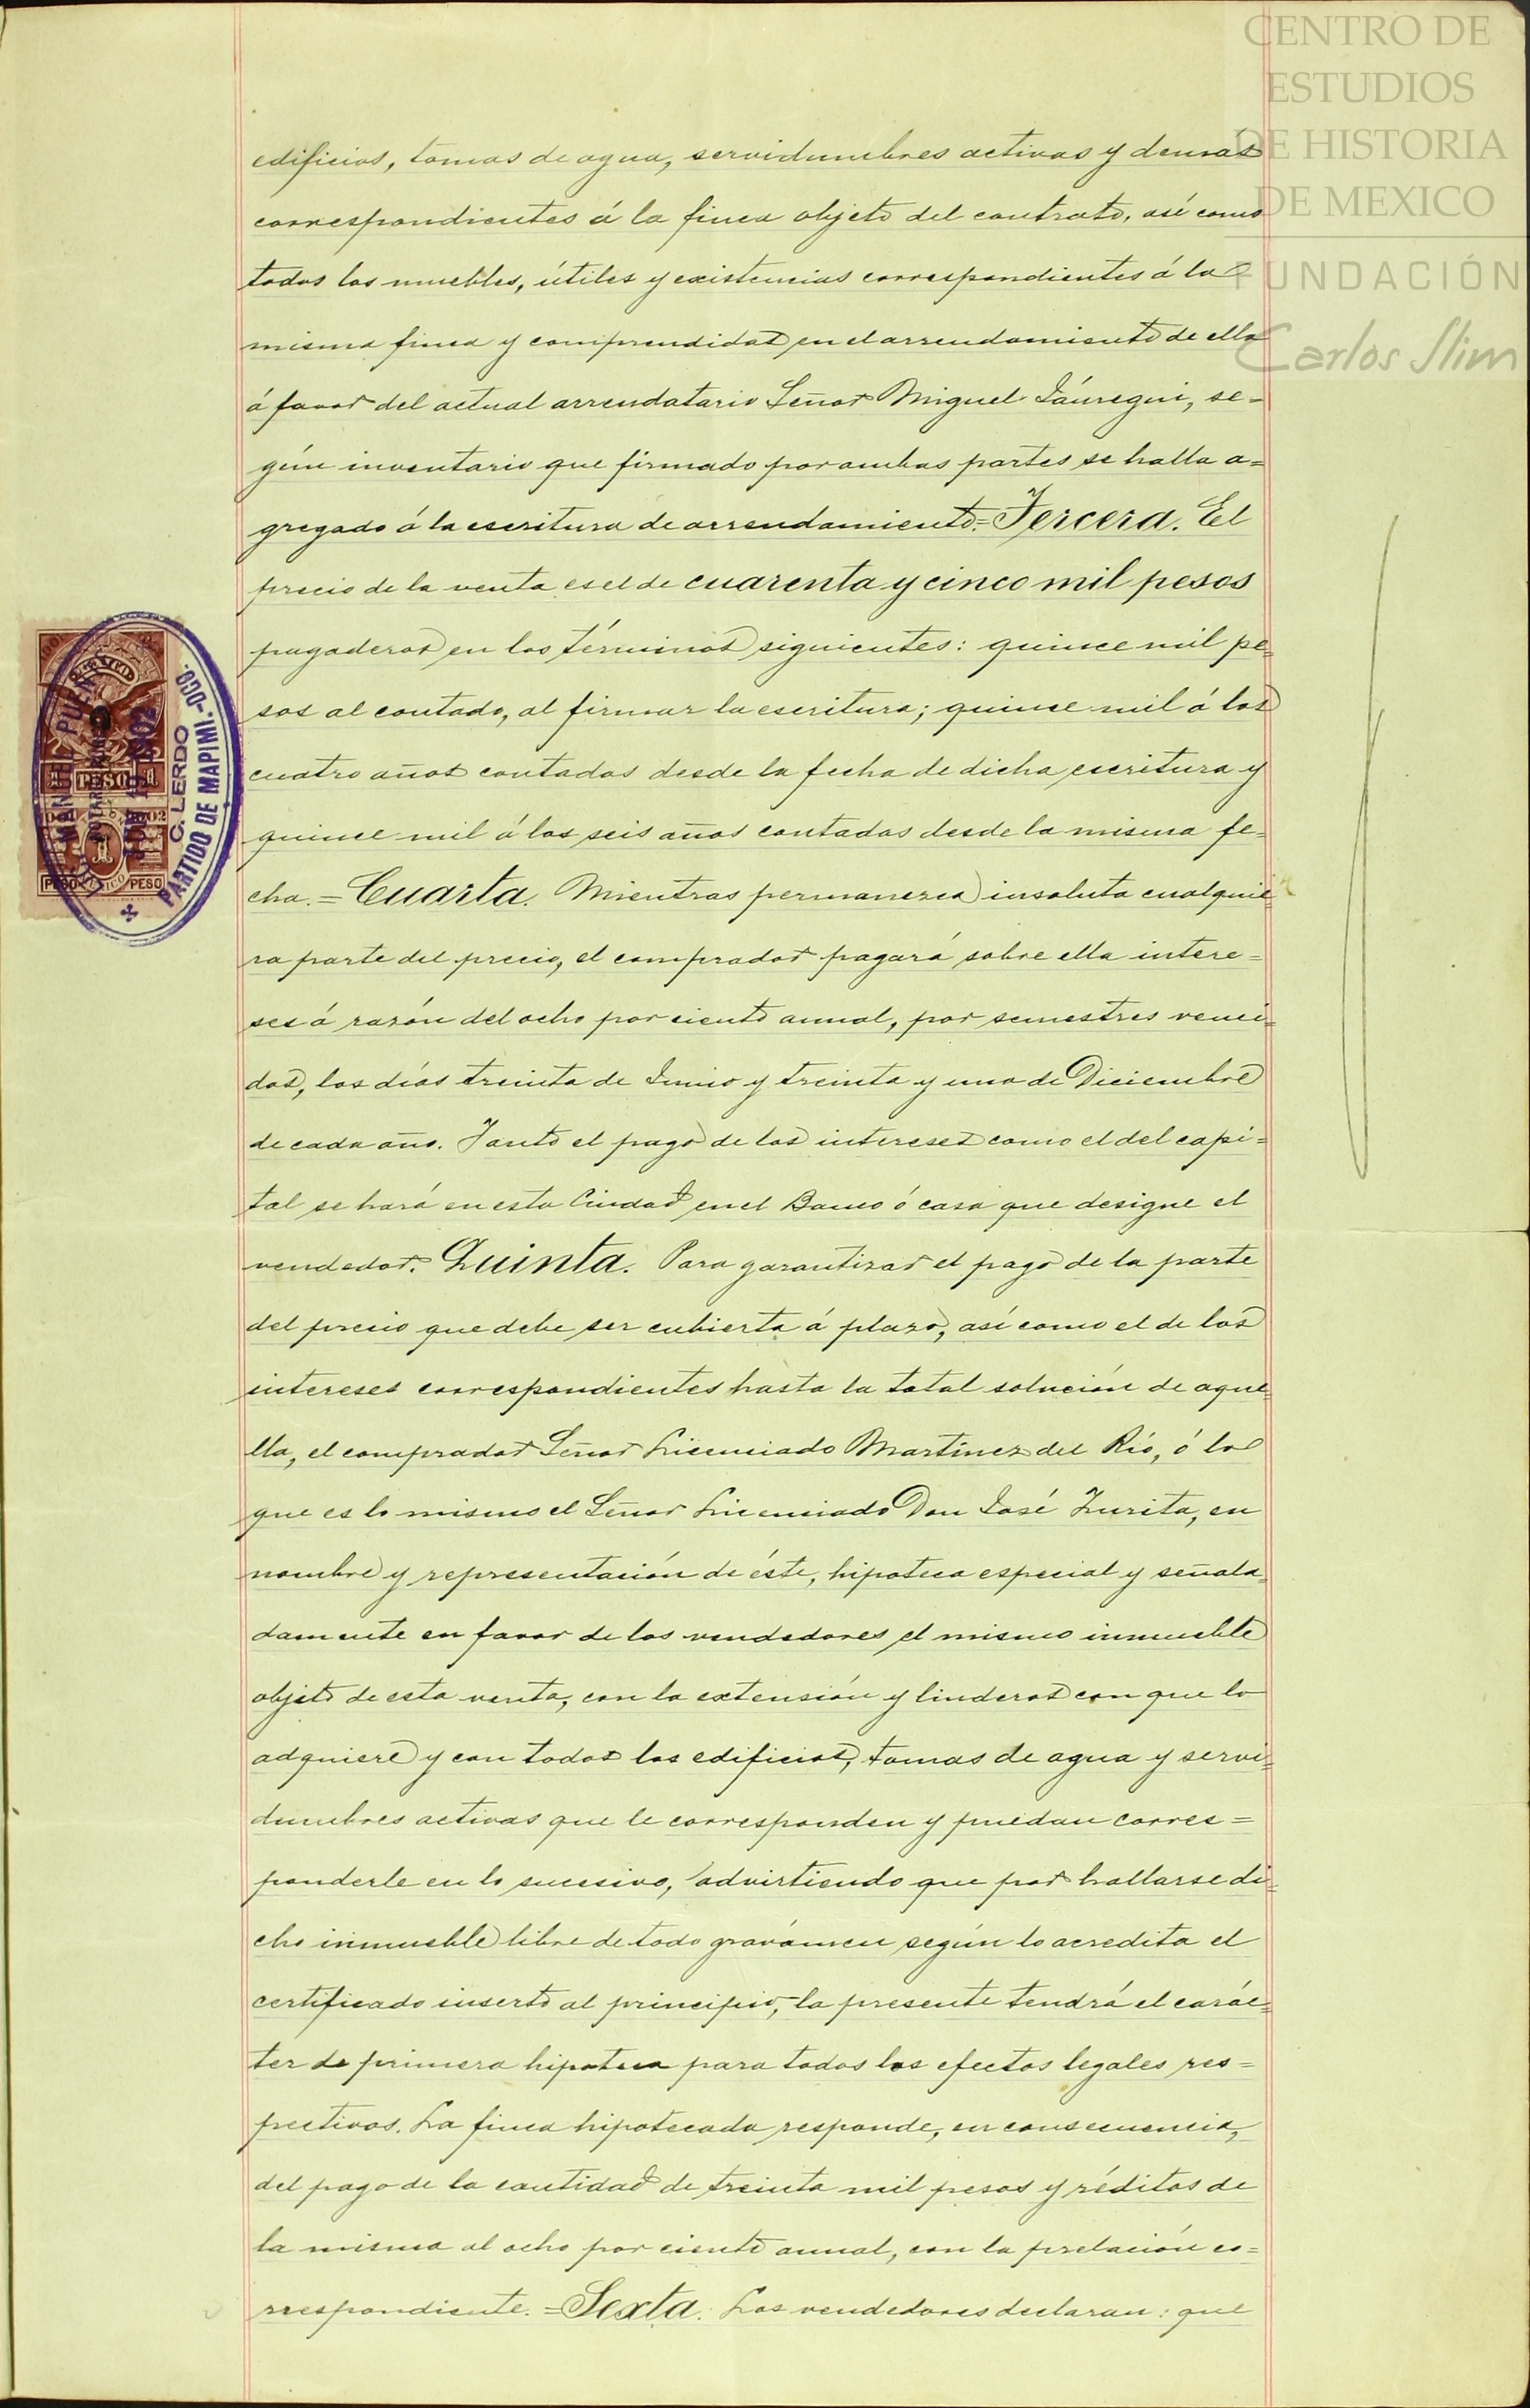 CENTRO DE
ESTUDIOS
DE HISTORIA
DE MEXICO
FUNDACIÓN
Carlos Slim
edificios, tomas de agua, servidumbres activas y demas
correspondientes á la finca objeto del contrato, así como
todos los muebles, útiles y existencias correspondientes á la
misma finca y comprendidas en el arrendamiento de ella
á favor del actual arrendatario Señor Miguel Jáuregui, se=
gún inventario que firmado por ambas partes se halla a=
gregado á la escritura de arrendamiento.= Tercera. El
precio de la venta es el de cuarenta y cinco mil pesos
pagaderos en los términos siguientes: quince mil pe=
sos al contado, al firmar la escritura; quince mil á los
cuatro años contados desde la fecha de dicha escritura y
quince mil á los seis años contados desde la misma fe=
cha.= Cuarta. Mientras permanezca insoluta cualquie=
ra parte del precio, el comprador pagará sobre ella intere=
ses á razón del ocho por ciento anual, por semestres venci=
dos, los días treinta de Junio y treinta y uno de Diciembre
de cada año. Tanto el pago de los intereses como el del capi=
tal se hará en esta Ciudad en el Banco ó casa que designe el
vendedor. Quinta. Para garantizar el pago de la parte
del precio que debe ser cubierta á plazo, así como el de los
intereses correspondientes hasta la total solución de aque=
lla, el comprador Señor Licenciado Martínez del Río, ó lo
que es lo mismo el Señor Licenciado Don José Zurita, en
nombre y representación de éste, hipoteca especial y señala=
damente en favor de los vendedores el mismo inmueble
objeto de esta venta, con la extensión y linderos con que lo
adquiere y con todos los edificios, tomas de agua y servi=
dumbres activas que le corresponden y puedan corres=
ponderle en lo sucesivo, advirtiendo que por hallarse di=
cho inmueble libre de todo gravámen según lo acredita el
certificado inserto al principio, la presente tendrá el carác=
ter de primera hipoteca para todos los efectos legales res=
pectivos. La finca hipotecada responde, en consecuencia,
del pago de la cantidad de treinta mil pesos y réditos de
la misma al ocho por ciento anual, con la prelación co=
rrespondiente.= Sexta. Los vendedores declaran: que
MANUEL PUEN
C. LERDO
PARTIDO DE MAPIMI.-DGO.
1 PESO 1
PESO
PESO